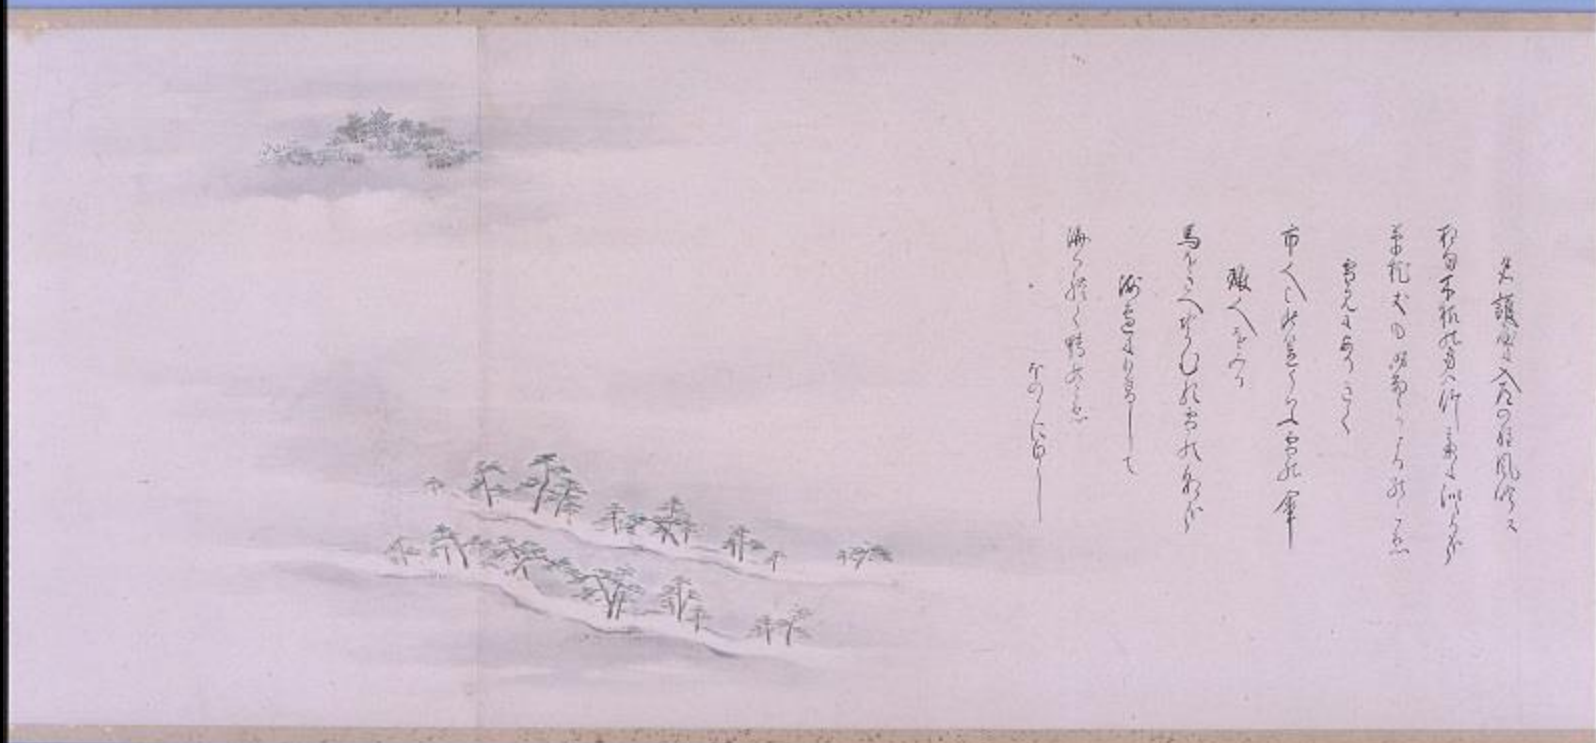 名護屋に入道の程風吟ス
狂句木枯の身は竹斎に似たる哉
草枕犬も時雨るかよるのこゑ
雪見にありきて
市人よ此笠うらふ雪の傘
旅人をみる
馬をさへながむる雪の朝哉
海辺に日暮して
海くれて鴨のこゑ
ほのかに白し